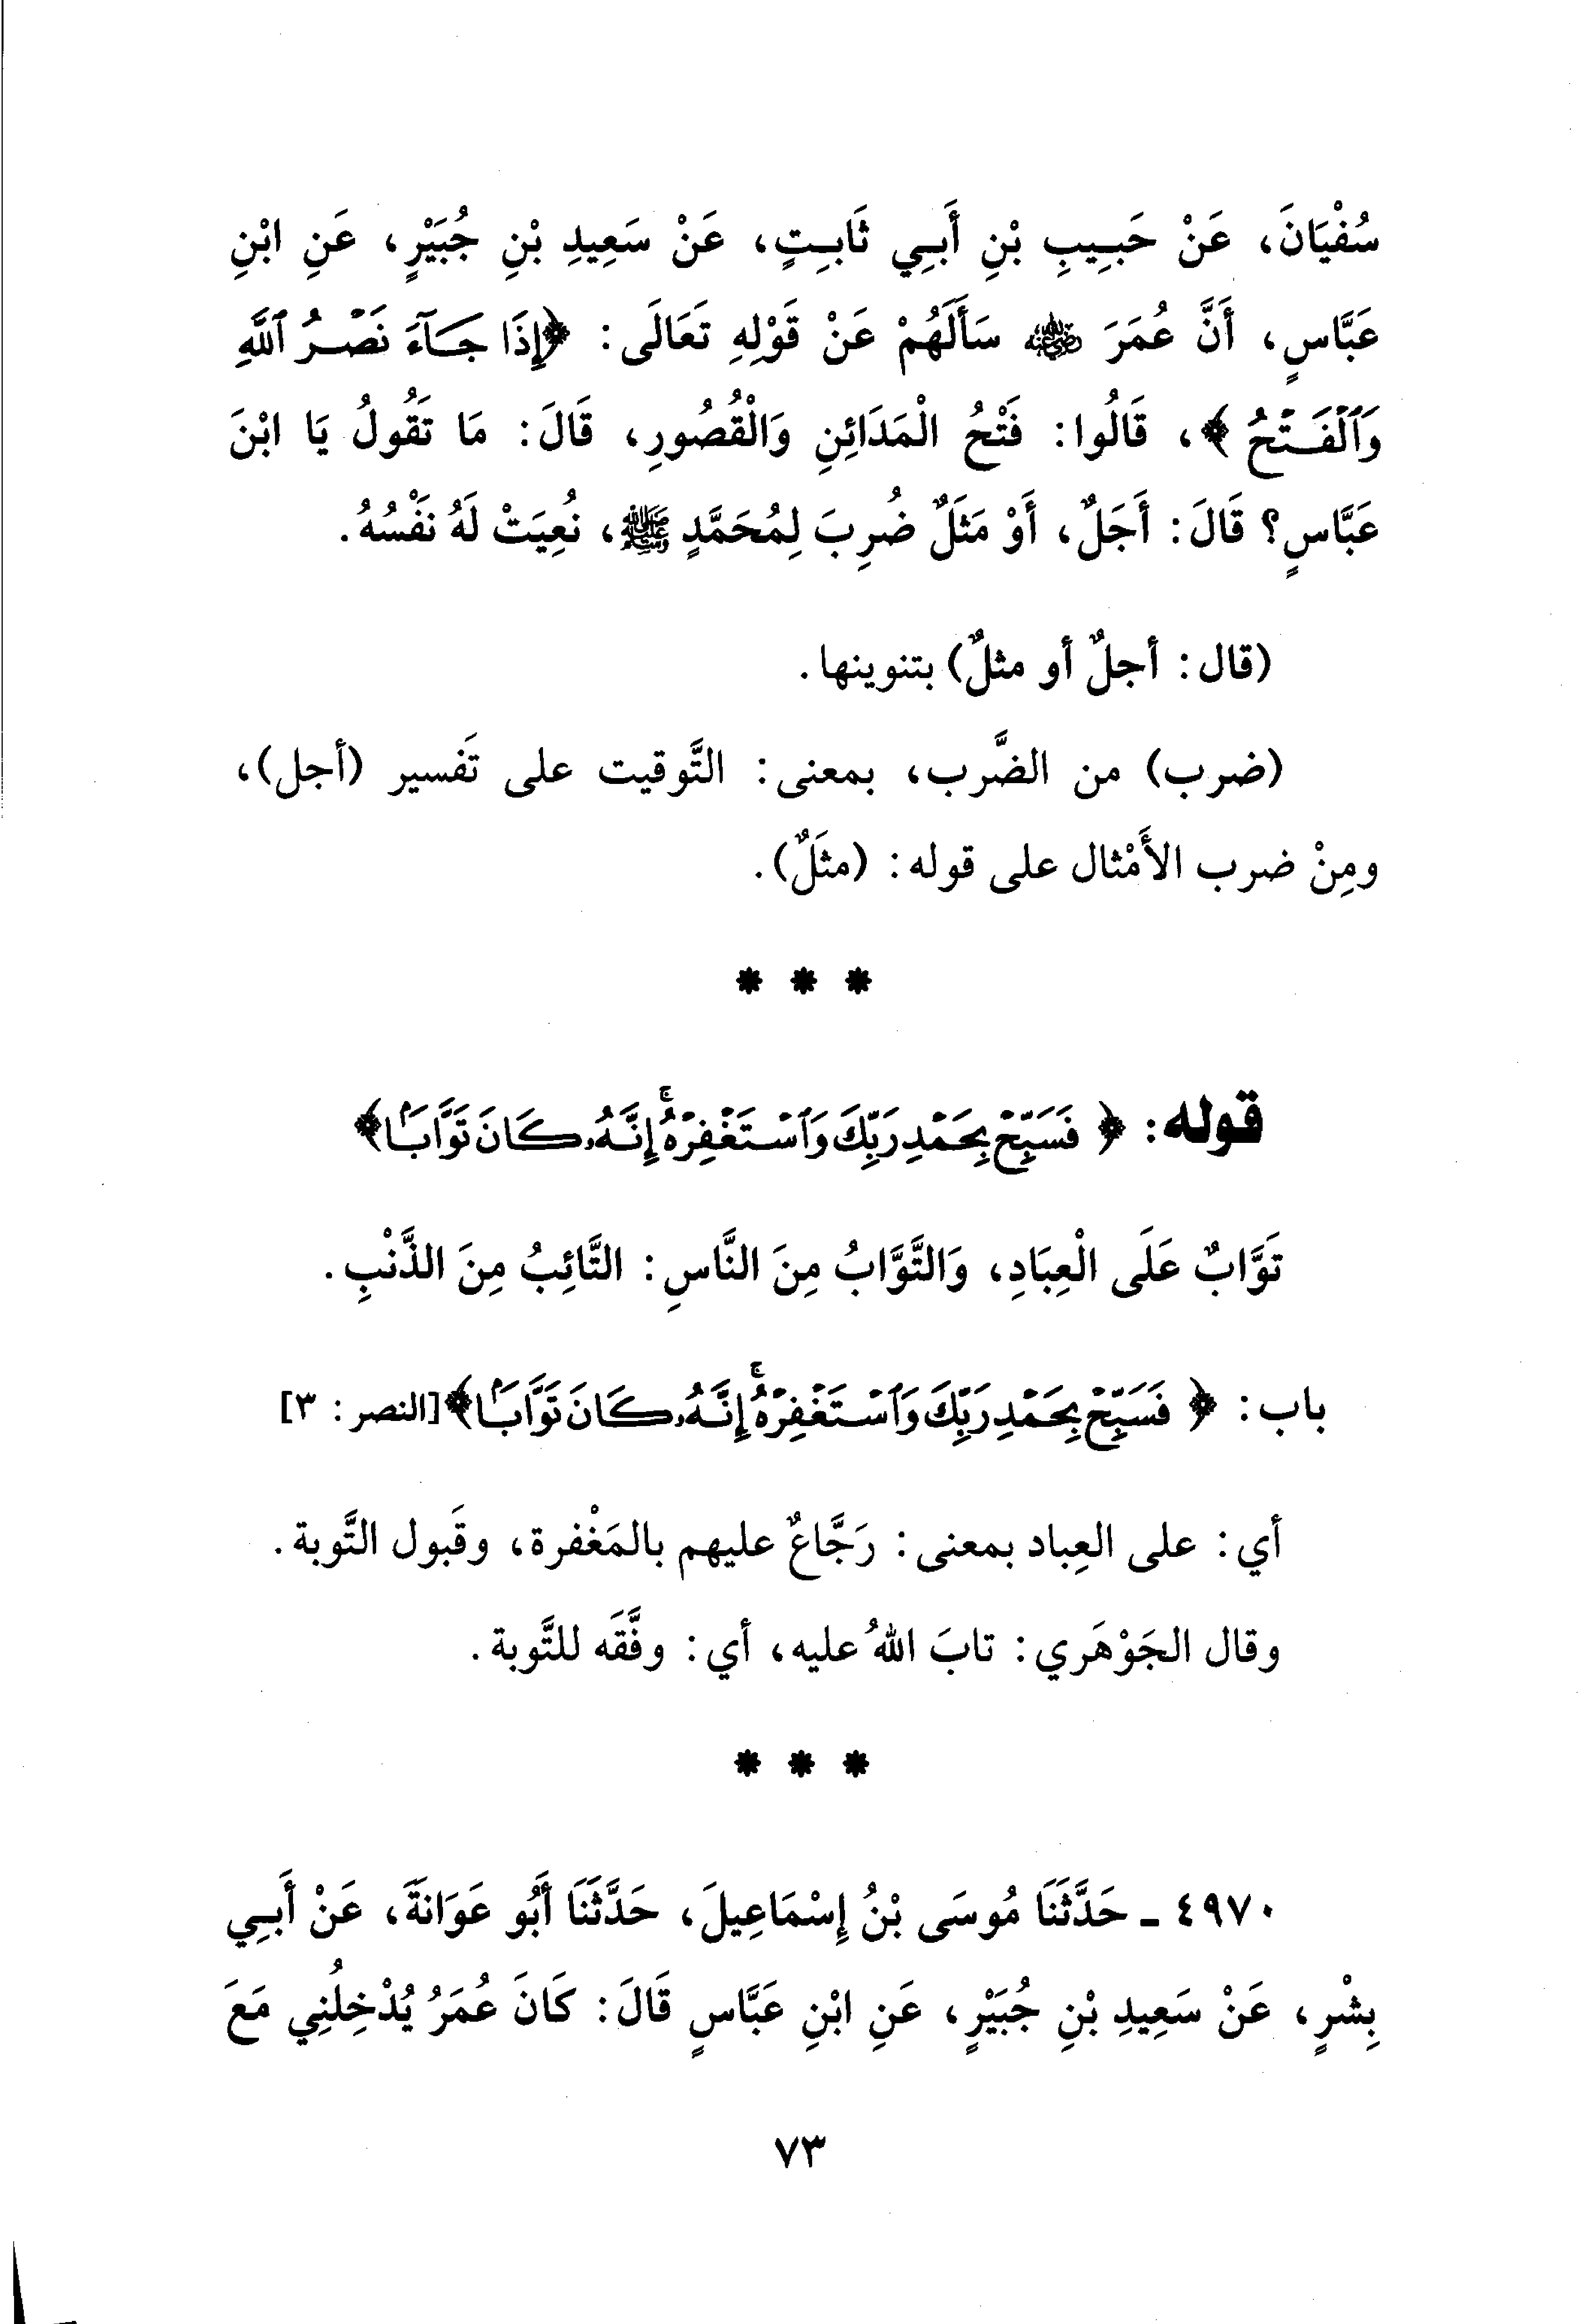 سُفْيَانَ، عَنْ حَبِيبِ بْنِ أَبِي ثَابِتٍ، عَنْ سَعِيدِ بْنِ جُبَيْرٍ، عَنِ ابْنِ
عَبَّاسٍ، أَنَّ عُمَرَ ﵁ سَأَلَهُمْ عَنْ قَوْلِهِ تَعَالَى: ﴿إِذَا جَآءَ نَصْرُ ٱللَّهِ
وَٱلْفَتْحُ﴾، قَالُوا: فَتْحُ الْمَدَائِنِ وَالْقُصُورِ، قَالَ: مَا تَقُولُ يَا ابْنَ
عَبَّاسٍ؟ قَالَ: أَجَلٌ، أَوْ مَثَلٌ ضُرِبَ لِمُحَمَّدٍ ﷺ، نُعِيَتْ لَهُ نَفْسُهُ.
(قال: أجلٌ أو مثلٌ) بتنوينها.
(ضرب) من الضَّرب، بمعنى: التَّوقيت على تَفسير (أجل)،
ومِنْ ضرب الأَمْثال على قوله: (مثَلٌ).
* * *
قوله: ﴿فَسَبِّحْ بِحَمْدِ رَبِّكَ وَٱسْتَغْفِرْهُ ۚ إِنَّهُۥ كَانَ تَوَّابًۢا﴾
تَوَّابٌ عَلَى الْعِبَادِ، وَالتَّوَّابُ مِنَ النَّاسِ: التَّائِبُ مِنَ الذَّنْبِ.
باب: ﴿فَسَبِّحْ بِحَمْدِ رَبِّكَ وَٱسْتَغْفِرْهُ ۚ إِنَّهُۥ كَانَ تَوَّابًۢا﴾ [النصر: ٣]
أي: على العِباد بمعنى: رَجَّاعٌ عليهم بالمَغْفرة، وقَبول التَّوبة.
وقال الجَوْهَري: تابَ اللهُ عليه، أي: وفَّقَه للتَّوبة.
* * *
٤٩٧٠ - حَدَّثَنَا مُوسَى بْنُ إِسْمَاعِيلَ، حَدَّثَنَا أَبُو عَوَانَةَ، عَنْ أَبِي
بِشْرٍ، عَنْ سَعِيدِ بْنِ جُبَيْرٍ، عَنِ ابْنِ عَبَّاسٍ قَالَ: كَانَ عُمَرُ يُدْخِلُنِي مَعَ
٧٣